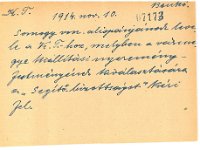 K. T. 1914. nov. 10. Benkő.
07173
Somogy vm. alispánjának leve-
le a K. T.-hoz, melyben a várme-
gye kiállítási nyeremény-
kiválasztására
a „Segítő bizottságot" kéri
fel.